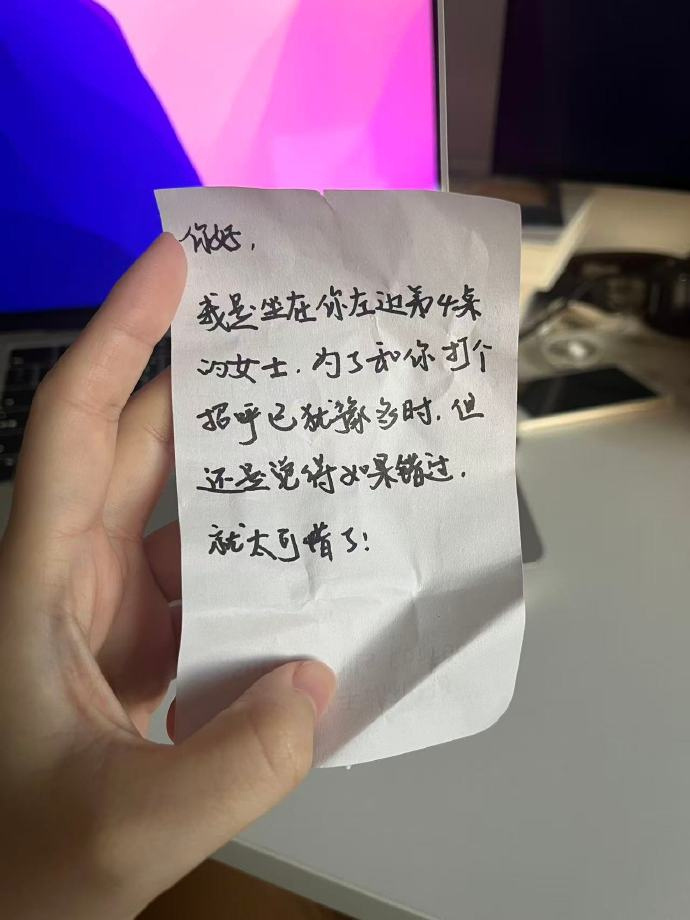 你好,
我是坐在你左边第4桌
的女士.为了和你打个
招呼已犹豫多时.但
还是觉得如果错过.
就太可惜了!